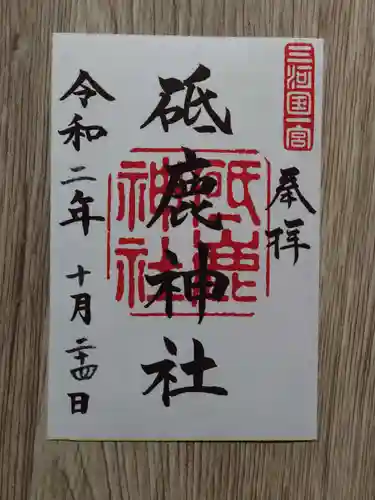 三河国一宮
奉拝
砥鹿神社
砥鹿
神社
令和二年 十月二十四日